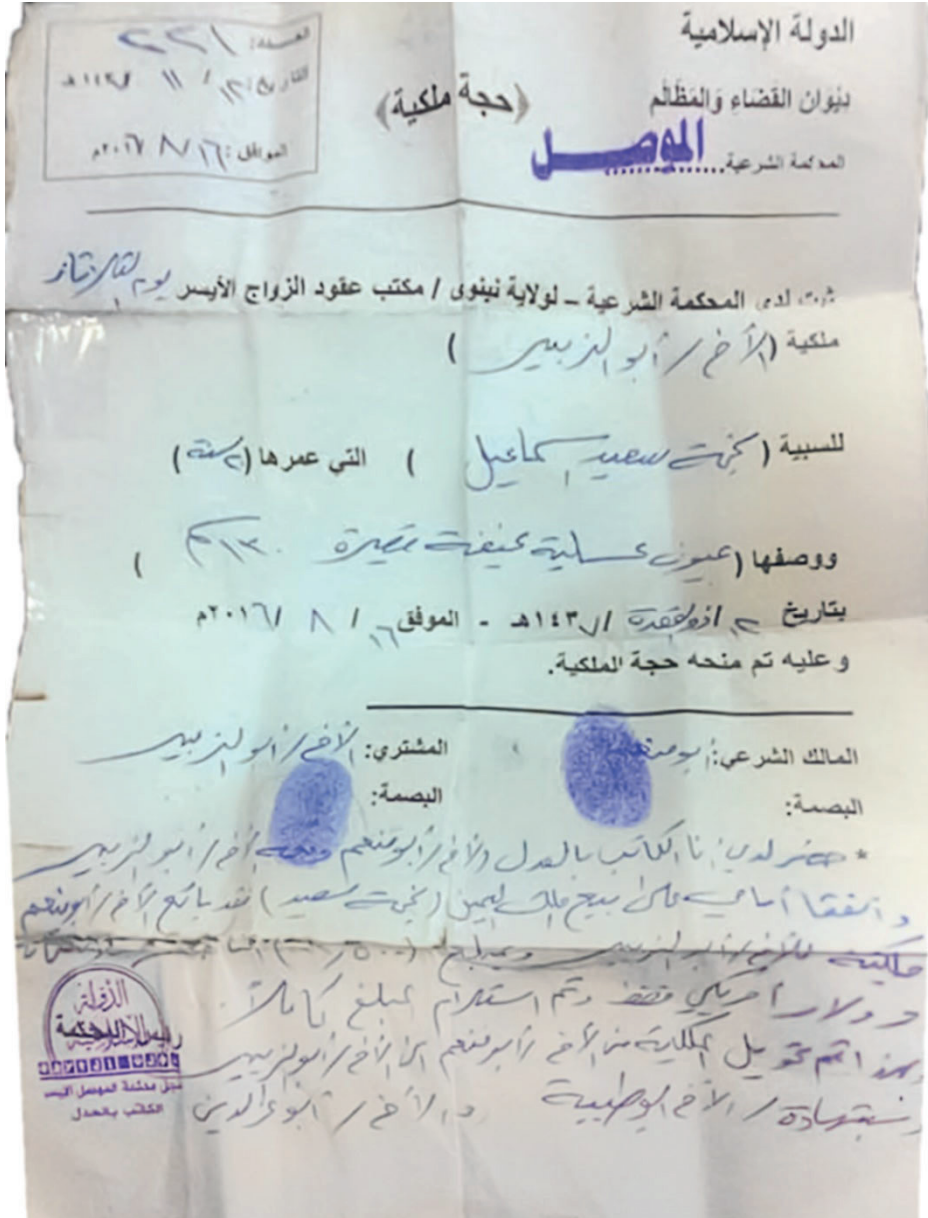 الدولة الإسلامية
ديوان القضاء والمظالم
المحكمة الشرعية ....... الموصل
(حجة ملكية)
العدد: ٢٢١
التاريخ / ١١ / ١٤٣هـ
الموافق: ١٦/ ٨ /٢٠١٦م
ثبت لدى المحكمة الشرعية – لولاية نينوى / مكتب عقود الزواج الأيسر يوم
ملكية (الأخ / أبو الزبير)
للسبية ( سعيد اسماعيل ) التي عمرها ( سنة)
ووصفها (عيون عسلية قصيرة ١٣٠ )
بتاريخ / ذو القعدة / ١٤٣هـ - الموفق ١٦ / ٨ /٢٠١٦م
وعليه تم منحه حجة الملكية.
المالك الشرعي: أبو منعم
المشتري: الأخ / أبو الزبير
البصمة:
البصمة:
* حضر لدي أنا الكاتب بالعدل الأخ / أبو منعم أخ / أبو الزبير
واتفقا أمامي على بيع ملك اليمين ( سعيد ) فقد بائع الأخ / أبو منعم
ملكيته للأخ / أبو الزبير
دولار أمريكي فقط وتم استلام المبلغ كاملاً
تم تحويل الملكية من الأخ / أبو منعم الى الأخ / أبو الزبير
بشهادة / الأخ والأخ / أبو عز الدين
الدولة
الكاتب بالعدل